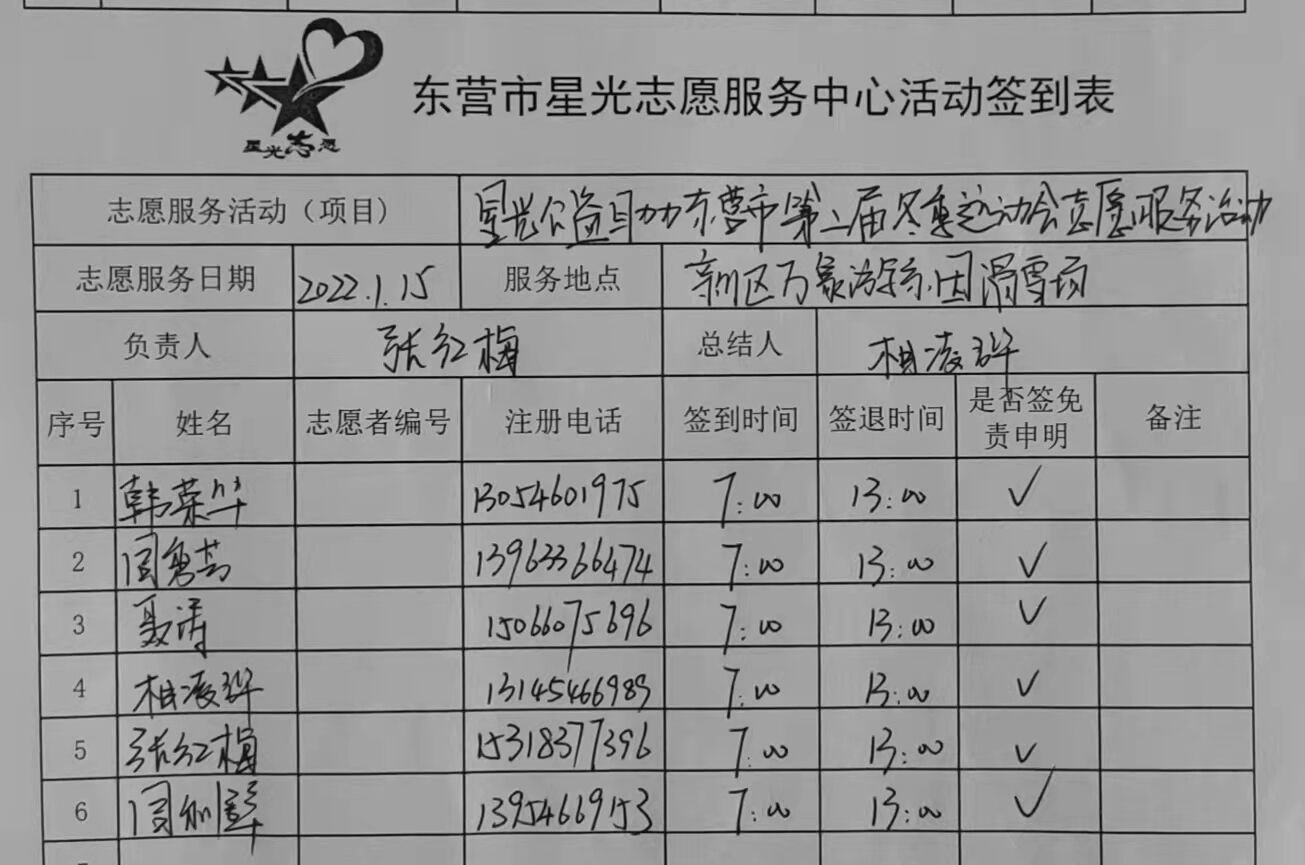 星光志愿
东营市星光志愿服务中心活动签到表
志愿服务活动（项目） 星光公益助力东营市第二届冬季运动会志愿服务活动
志愿服务日期 2022.1.15 服务地点 区万象游乐园滑雪场
负责人 张红梅 总结人 相凌
序号 姓名 志愿者编号 注册电话 签到时间 签退时间 是否签免责申明 备注
1 韩荣华 13054601975 7:00 13:00 ✓
2 13963366474 7:00 13:00 ✓
3 聂涛 15066075696 7:00 13:00 ✓
4 相凌 13145466989 7:00 13:00 ✓
5 张红梅 15318377396 7:00 13:00 ✓
6 13954669153 7:00 13:00 ✓